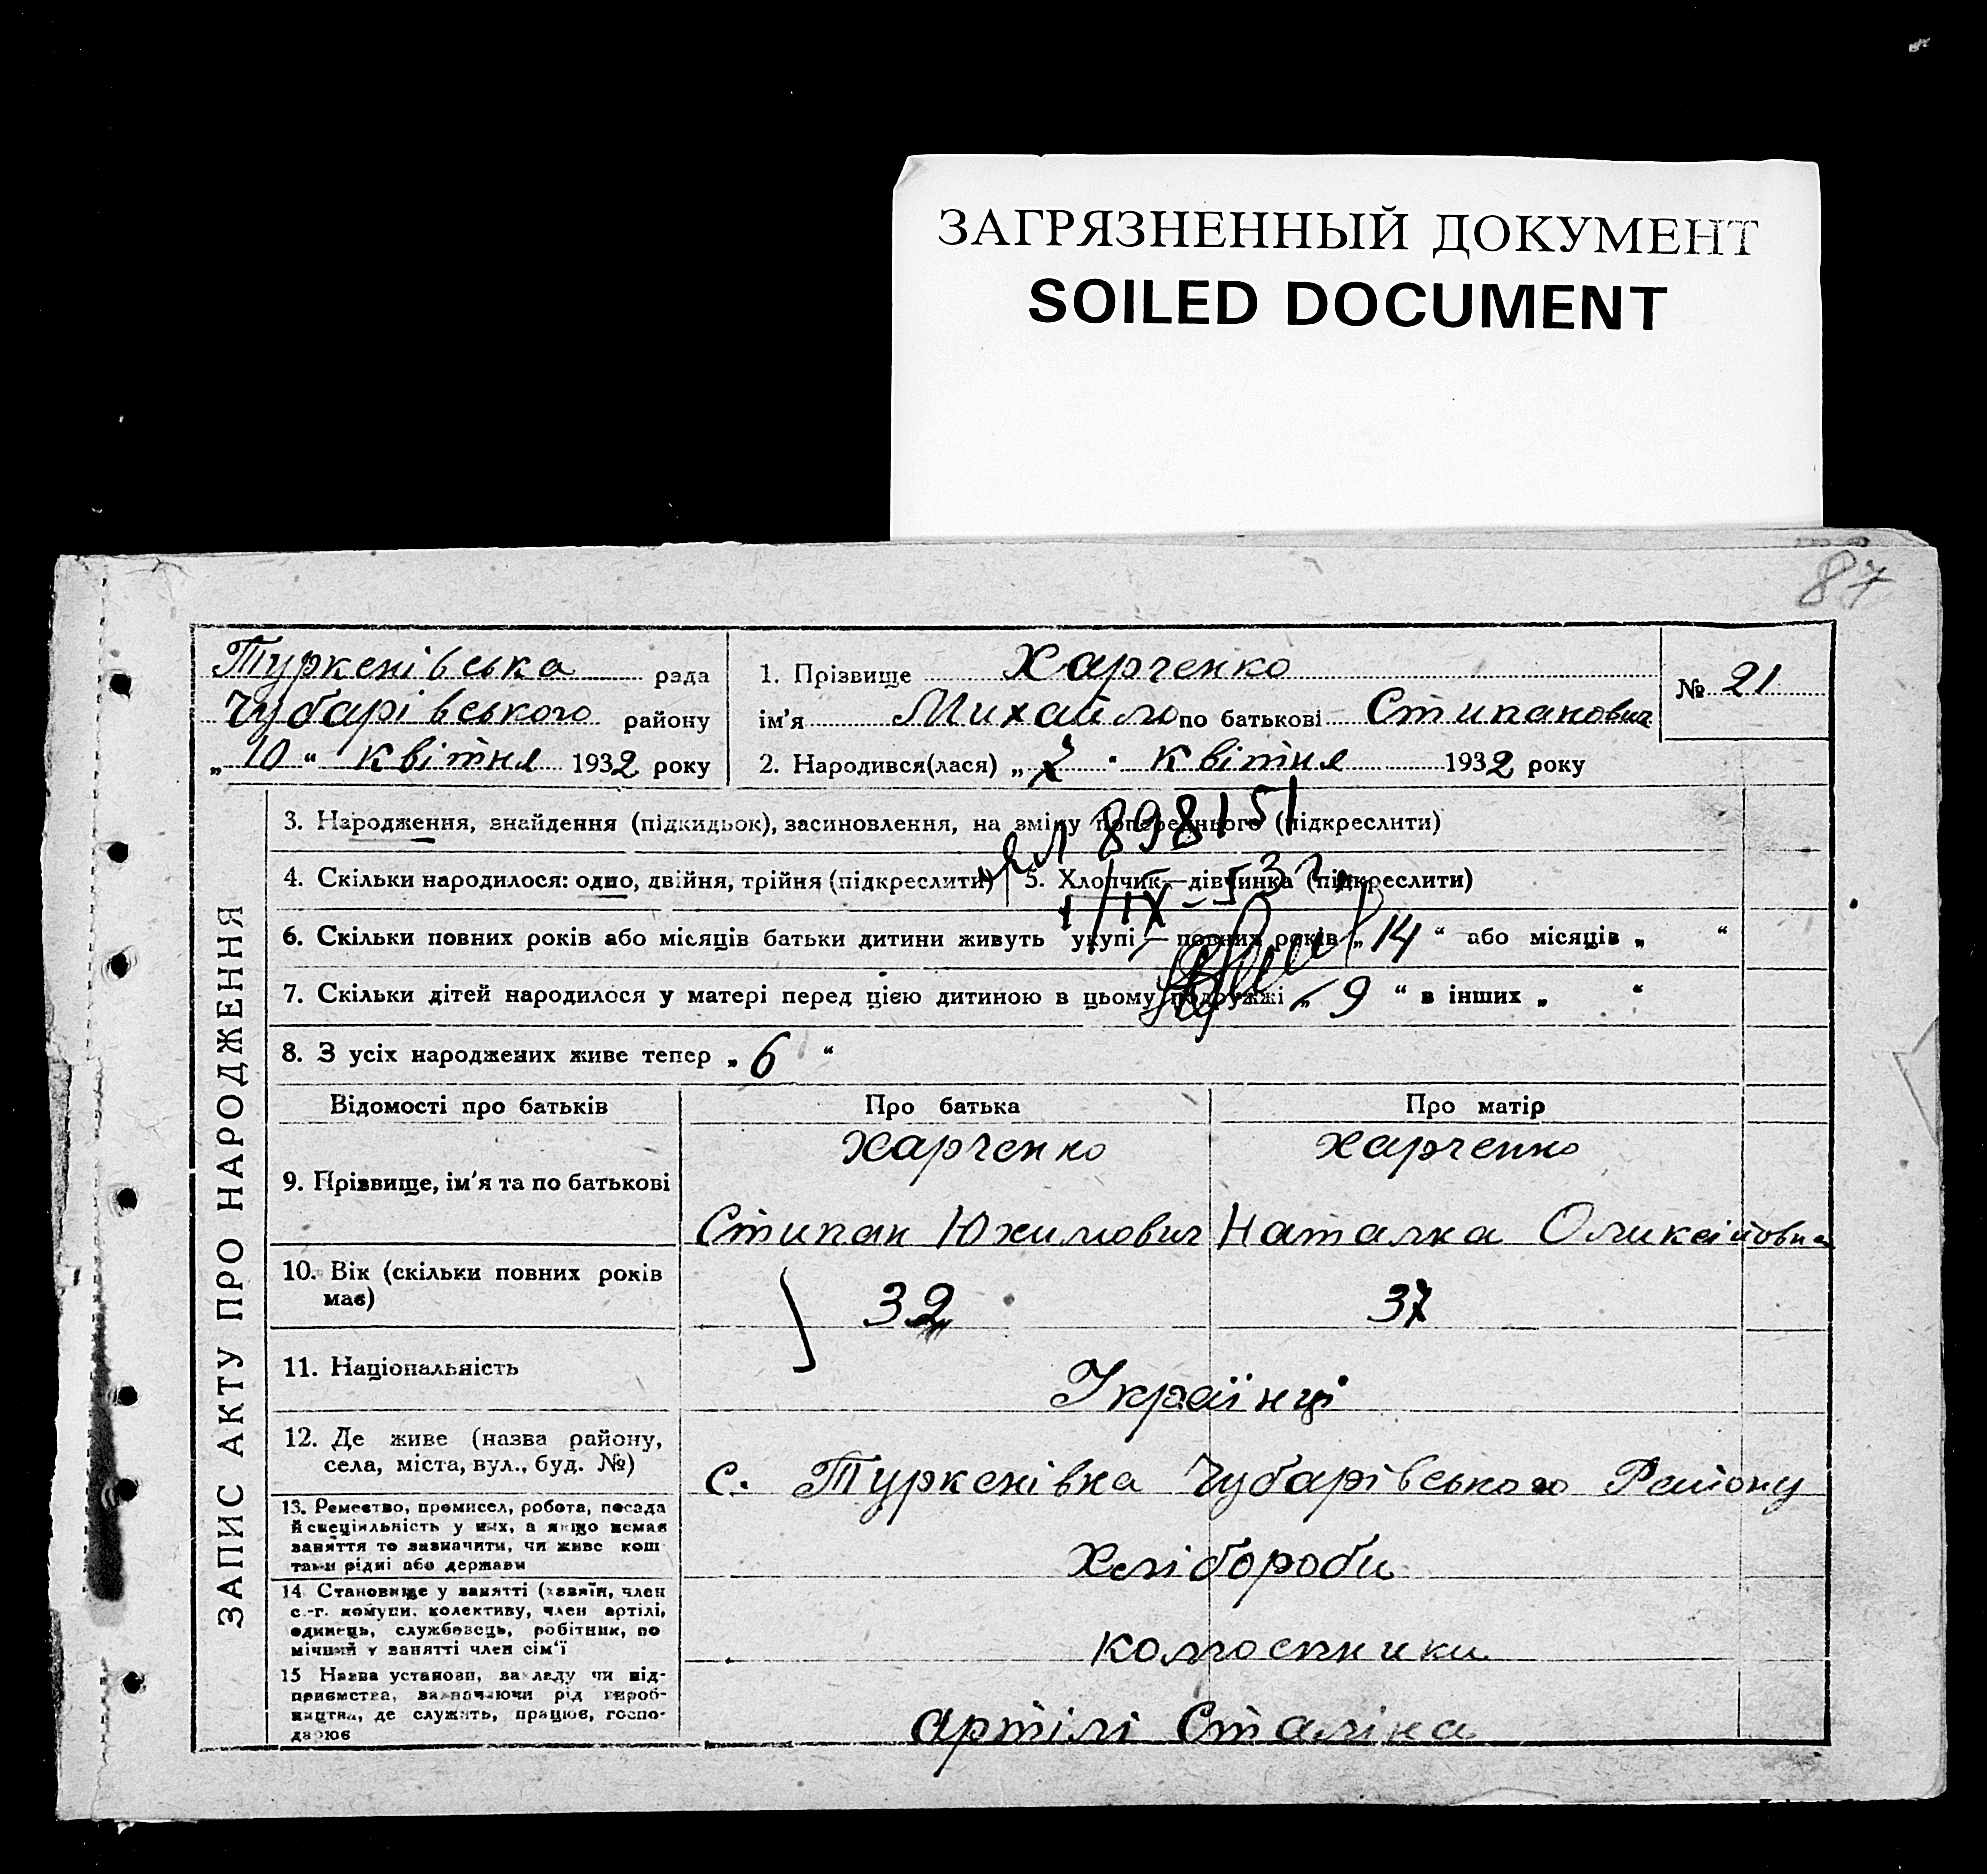 ЗАГРЯЗНЕННЫЙ ДОКУМЕНТ
SOILED DOCUMENT
87
Туркенівська рада
Чубарівського району
„ 10 “ квітня 1932 року
1. Прізвище Харченко
ім'я Михайло по батькові Стипанович
2. Народився(лася) „ 7 . квітня 1932 року
№ 21
ЗАПИС АКТУ ПРО НАРОДЖЕННЯ
3. Народження, знайдення (підкидьок), засиновлення, на зміну попереднього (підкреслити)
898151
4. Скільки народилося: одно, двійня, трійня (підкреслити) 5. Хлопчик—дівчинка (підкреслити)
6. Скільки повних років або місяців батьки дитини живуть укупі — повних років „ 14 “ або місяців „ “
7. Скільки дітей народилося у матері перед цією дитиною в цьому подружжі „ 9 “ в інших „ “
8. З усіх народжених живе тепер „ 6 “
Відомості про батьків Про батька Про матір
9. Прізвище, ім'я та по батькові
Харченко Харченко
Стипан Юхимович Наталка Оликсійовна
10. Вік (скільки повних років має)
32 37
11. Національність
Українці
12. Де живе (назва району, села, міста, вул., буд. №)
с. Туркенівка Чубарівського Району
13. Ремество, промисел, робота, посада
й спеціяльність у них, а якщо немає
заняття то зазначити, чи живе кош
тами рідні або держави
Хлібороби
14 Становище у занятті (хазяїн, член
с.-г. комуни, колективу, член артілі,
одинець, службовець, робітник, по
мічний у занятті член сім'ї
колгоспники
15 Назва установи, закладу чи під-
приємства, зазначаючи рід вироб-
ництва, де служить, працює, госпо-
дарює
артілі Сталіна